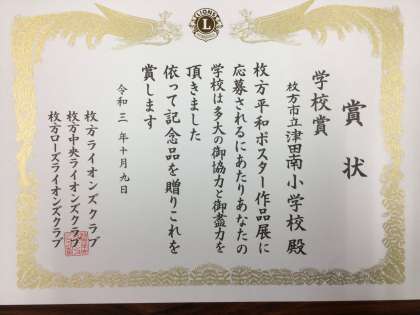 LIONS
L
賞状
学校賞
枚方市立津田南小学校 殿
枚方平和ポスター作品展に
応募されるにあたりあなたの
学校は多大の御協力と御盡力を
頂きました
依って記念品を贈りこれを
賞します
令和三年十月九日
枚方ライオンズクラブ
枚方中央ライオンズクラブ
枚方ローズライオンズクラブ